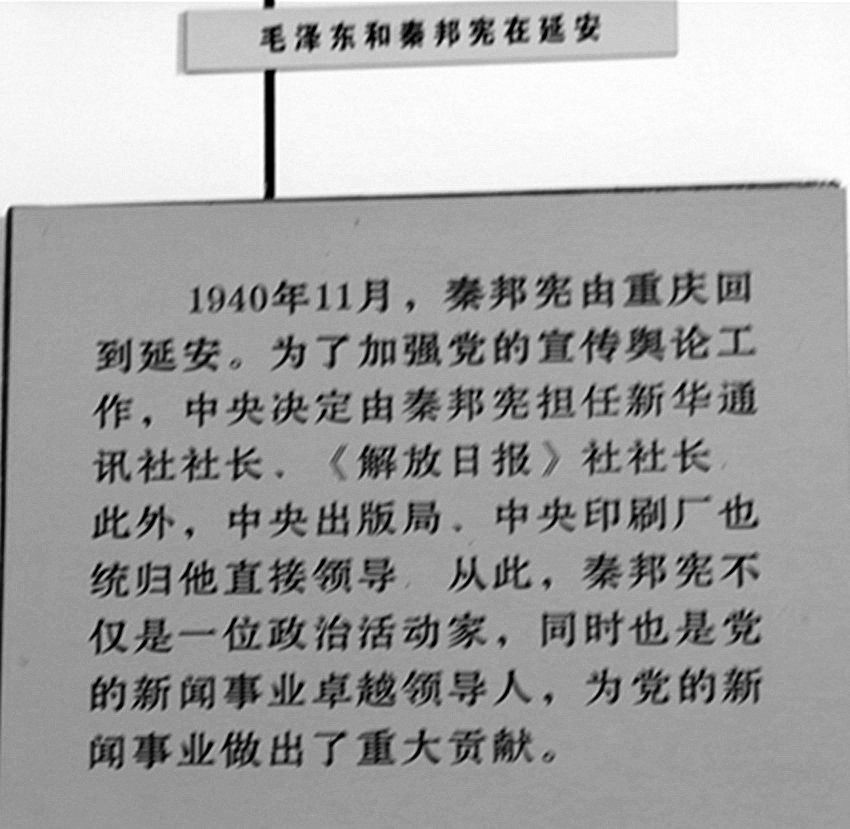 毛泽东和秦邦宪在延安
1940年11月，秦邦宪由重庆回
到延安。为了加强党的宣传舆论工
作，中央决定由秦邦宪担任新华通
讯社社长、《解放日报》社社长.
此外，中央出版局、中央印刷厂也
统归他直接领导. 从此，秦邦宪不
仅是一位政治活动家，同时也是党
的新闻事业卓越领导人，为党的新
闻事业做出了重大贡献。